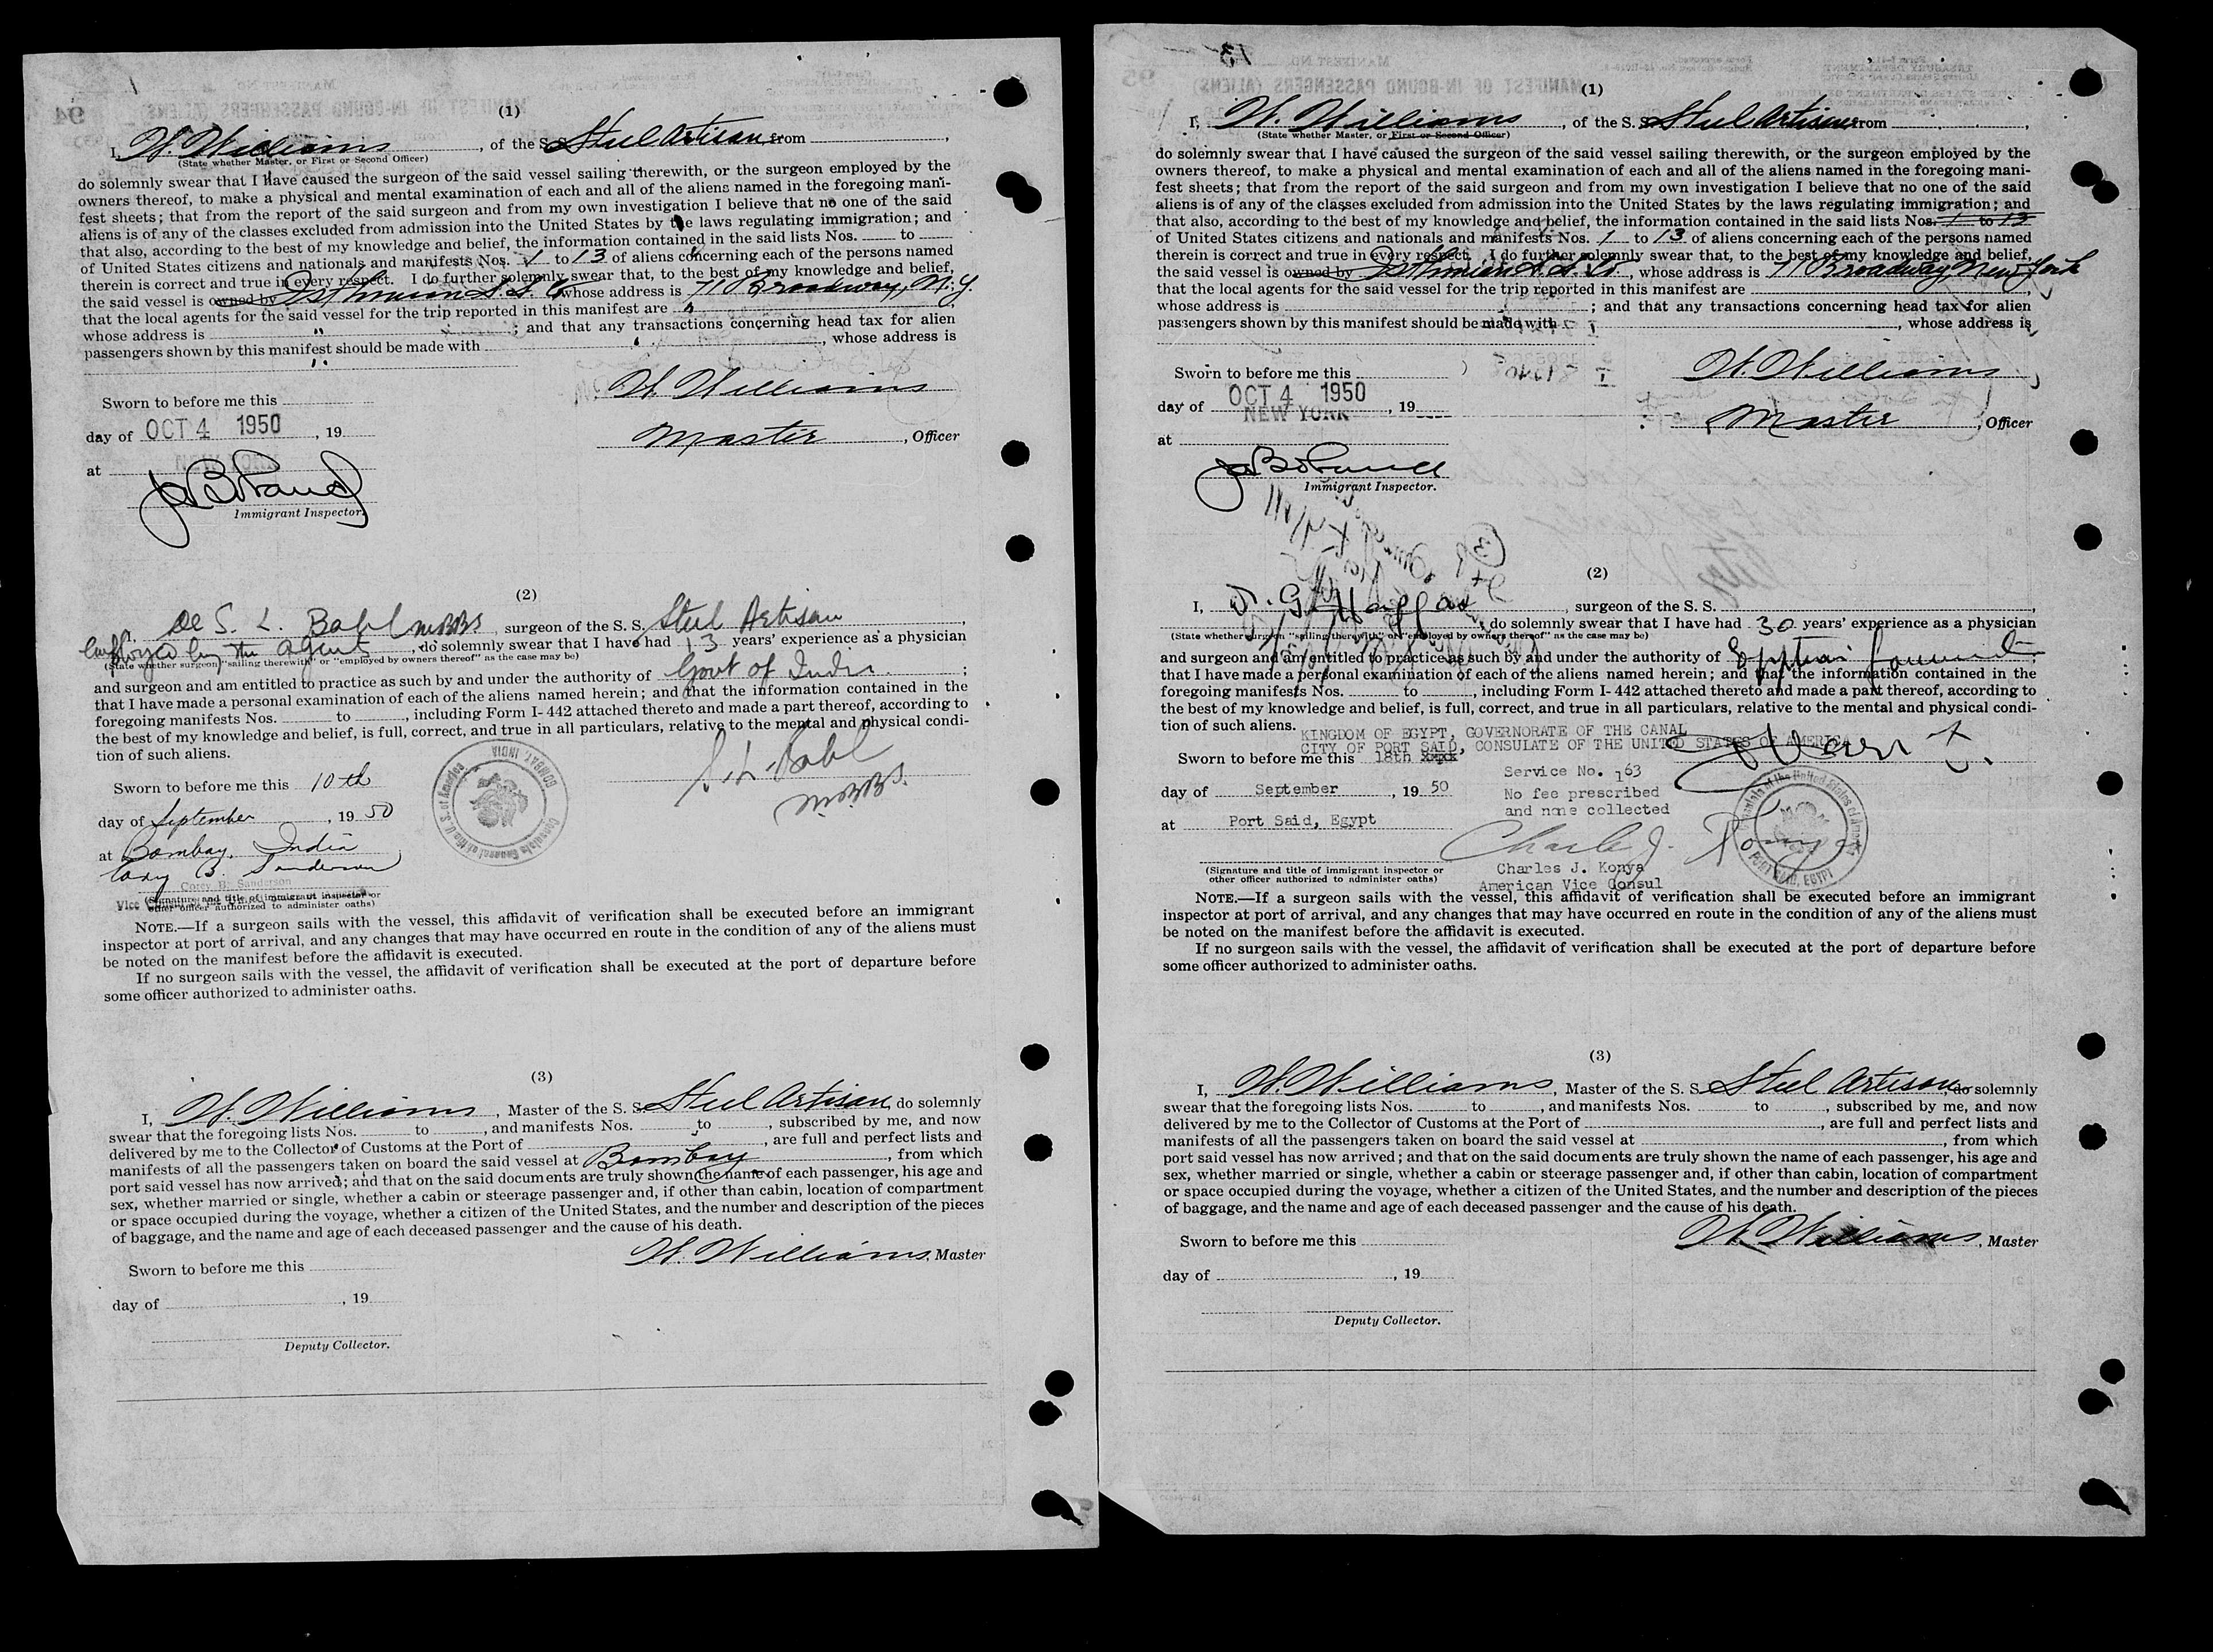 (1)
I, W. Williams, of the S. S. Steel Artisan from
(State whether Master, or First or Second Officer)
do solemnly swear that I have caused the surgeon of the said vessel sailing therewith, or the surgeon employed by the
owners thereof, to make a physical and mental examination of each and all of the aliens named in the foregoing mani-
fest sheets; that from the report of the said surgeon and from my own investigation I believe that no one of the said
aliens is of any of the classes excluded from admission into the United States by the laws regulating immigration; and
that also, according to the best of my knowledge and belief, the information contained in the said lists Nos. to
of United States citizens and nationals and manifests Nos. 1 to 13 of aliens concerning each of the persons named
therein is correct and true in every respect. I do further solemnly swear that, to the best of my knowledge and belief,
the said vessel is owned by Isthmian S. S. Co whose address is 71 Broadway, N.Y.
that the local agents for the said vessel for the trip reported in this manifest are "
whose address is " ; and that any transactions concerning head tax for alien
passengers shown by this manifest should be made with " , whose address is
"
W. Williams
Sworn to before me this
day of OCT 4 1950, 19
Master, Officer
at
Immigrant Inspector.
(2)
I, De S. L. Bahl MBBS, surgeon of the S. S. Steel Artisan,
employed by the agents, do solemnly swear that I have had 13 years' experience as a physician
(State whether surgeon "sailing therewith" or "employed by owners thereof" as the case may be)
and surgeon and am entitled to practice as such by and under the authority of Govt of India ;
that I have made a personal examination of each of the aliens named herein; and that the information contained in the
foregoing manifests Nos. to , including Form I-442 attached thereto and made a part thereof, according to
the best of my knowledge and belief, is full, correct, and true in all particulars, relative to the mental and physical condi-
tion of such aliens.
S. L. Bahl
Sworn to before me this 10th
day of September, 19 50
at Bombay, India
Corey B. Sanderson
Corey B. Sanderson
Vice
(Signature and title of immigrant inspector or
other officer authorized to administer oaths)
Consulate General of the U. S. of America
BOMBAY, INDIA
NOTE.—If a surgeon sails with the vessel, this affidavit of verification shall be executed before an immigrant
inspector at port of arrival, and any changes that may have occurred en route in the condition of any of the aliens must
be noted on the manifest before the affidavit is executed.
If no surgeon sails with the vessel, the affidavit of verification shall be executed at the port of departure before
some officer authorized to administer oaths.
(3)
I, W. Williams, Master of the S. S. Steel Artisan, do solemnly
swear that the foregoing lists Nos. to , and manifests Nos. to , subscribed by me, and now
delivered by me to the Collector of Customs at the Port of , are full and perfect lists and
manifests of all the passengers taken on board the said vessel at Bombay, from which
port said vessel has now arrived; and that on the said documents are truly shown the name of each passenger, his age and
sex, whether married or single, whether a cabin or steerage passenger and, if other than cabin, location of compartment
or space occupied during the voyage, whether a citizen of the United States, and the number and description of the pieces
of baggage, and the name and age of each deceased passenger and the cause of his death.
W. Williams, Master
Sworn to before me this
day of , 19
Deputy Collector.
(1)
I, W. Williams, of the S. S. Steel Artisan from
(State whether Master, or First or Second Officer)
do solemnly swear that I have caused the surgeon of the said vessel sailing therewith, or the surgeon employed by the
owners thereof, to make a physical and mental examination of each and all of the aliens named in the foregoing mani-
fest sheets; that from the report of the said surgeon and from my own investigation I believe that no one of the said
aliens is of any of the classes excluded from admission into the United States by the laws regulating immigration; and
that also, according to the best of my knowledge and belief, the information contained in the said lists Nos. 1 to 13
of United States citizens and nationals and manifests Nos. 1 to 13 of aliens concerning each of the persons named
therein is correct and true in every respect. I do further solemnly swear that, to the best of my knowledge and belief,
the said vessel is owned by Isthmian S. S. Co, whose address is 71 Broadway, New York
that the local agents for the said vessel for the trip reported in this manifest are
whose address is ; and that any transactions concerning head tax for alien
passengers shown by this manifest should be made with , whose address is
W. Williams
Sworn to before me this
day of OCT 4 1950, 19
NEW YORK
Master, Officer
at
Immigrant Inspector.
(2)
I, , surgeon of the S. S. ,
, do solemnly swear that I have had 30 years' experience as a physician
(State whether surgeon "sailing therewith" or "employed by owners thereof" as the case may be)
and surgeon and am entitled to practice as such by and under the authority of Egyptian Government;
that I have made a personal examination of each of the aliens named herein; and that the information contained in the
foregoing manifests Nos. to , including Form I-442 attached thereto and made a part thereof, according to
the best of my knowledge and belief, is full, correct, and true in all particulars, relative to the mental and physical condi-
tion of such aliens.
KINGDOM OF EGYPT, GOVERNORATE OF THE CANAL
CITY OF PORT SAID, CONSULATE OF THE UNITED STATES OF AMERICA
Sworn to before me this 18th
day of September, 19 50
at Port Said, Egypt
Service No. 163
No fee prescribed
and none collected
Charles J. Konya
American Vice Consul
(Signature and title of immigrant inspector or
other officer authorized to administer oaths)
Consulate of the United States of America
PORT SAID, EGYPT
NOTE.—If a surgeon sails with the vessel, this affidavit of verification shall be executed before an immigrant
inspector at port of arrival, and any changes that may have occurred en route in the condition of any of the aliens must
be noted on the manifest before the affidavit is executed.
If no surgeon sails with the vessel, the affidavit of verification shall be executed at the port of departure before
some officer authorized to administer oaths.
(3)
I, W. Williams, Master of the S. S. Steel Artisan, do solemnly
swear that the foregoing lists Nos. to , and manifests Nos. to , subscribed by me, and now
delivered by me to the Collector of Customs at the Port of , are full and perfect lists and
manifests of all the passengers taken on board the said vessel at , from which
port said vessel has now arrived; and that on the said documents are truly shown the name of each passenger, his age and
sex, whether married or single, whether a cabin or steerage passenger and, if other than cabin, location of compartment
or space occupied during the voyage, whether a citizen of the United States, and the number and description of the pieces
of baggage, and the name and age of each deceased passenger and the cause of his death.
W. Williams, Master
Sworn to before me this
day of , 19
Deputy Collector.